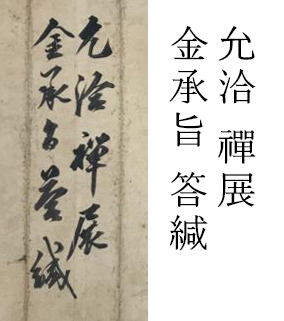 允洽禪展
金承旨答緘
允洽 禪展
金承旨 答緘